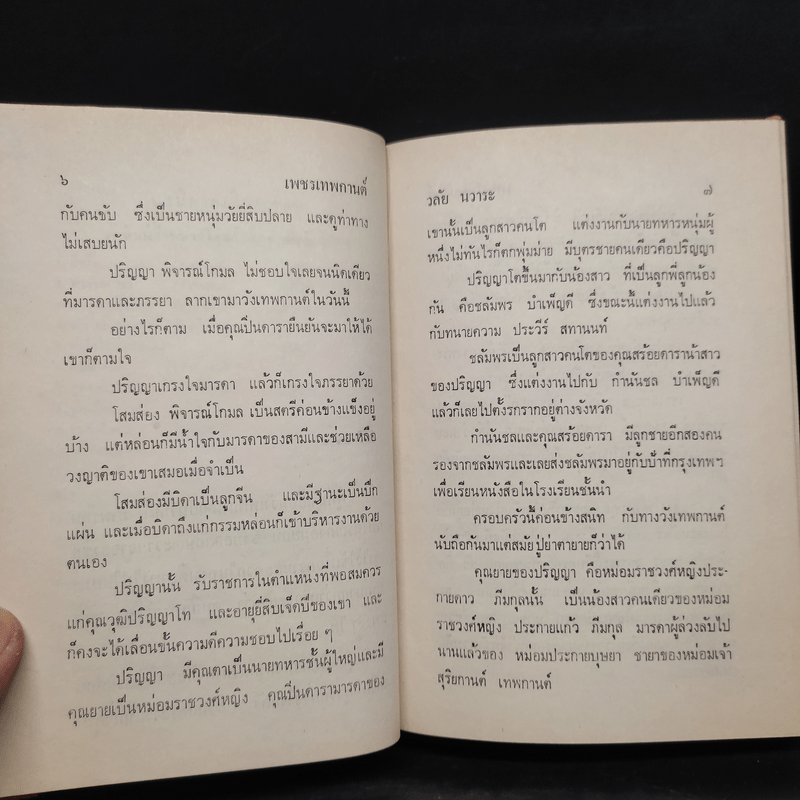 ๖
เพชรเทพกานต์
กับคนขับ ซึ่งเป็นชายหนุ่มวัยยี่สิบปลาย และดูท่าทาง
ไม่เสบยนัก
ปริญญา พิจารณ์โกมล ไม่ชอบใจเลยจนนิดเดียว
ที่มารดาและภรรยา ลากเขามาวังเทพกานต์ในวันนี้
อย่างไรก็ตาม เมื่อคุณปิ่นดารายืนยันจะมาให้ได้
เขาก็ตามใจ
ปริญญาเกรงใจมารดา แล้วก็เกรงใจภรรยาด้วย
โสมส่อง พิจารณ์โกมล เป็นสตรีค่อนข้างแข็งอยู่
บ้าง แต่หล่อนก็มีน้ำใจกับมารดาของสามีและช่วยเหลือ
วงญาติของเขาเสมอเมื่อจำเป็น
โสมส่องมีบิดาเป็นลูกจีน และมีฐานะเป็นปึก
แผ่น และเมื่อบิดาถึงแก่กรรมหล่อนก็เข้าบริหารงานด้วย
ตนเอง
ปริญญานั้น รับราชการในตำแหน่งที่พอสมควร
แก่คุณวุฒิปริญญาโท และอายุยี่สิบเจ็ดปีของเขา และ
ก็คงจะได้เลื่อนขั้นความดีความชอบไปเรื่อย ๆ
ปริญญา มีคุณตาเป็นนายทหารชั้นผู้ใหญ่และมี
คุณยายเป็นหม่อมราชวงศ์หญิง คุณปิ่นดารามารดาของ
วลัย นวาระ
๗
เขานั้นเป็นลูกสาวคนโต แต่งงานกับนายทหารหนุ่มผู้
หนึ่งไม่ทันไรก็ตกพุ่มม่าย มีบุตรชายคนเดียวคือปริญญา
ปริญญาโตขึ้นมากับน้องสาว ที่เป็นลูกพี่ลูกน้อง
กัน คือชลัมพร บำเพ็ญดี ซึ่งขณะนี้แต่งงานไปแล้ว
กับทนายความ ประวีร์ สทานนท์
ชลัมพรเป็นลูกสาวคนโตของคุณสร้อยดาราน้าสาว
ของปริญญา ซึ่งแต่งงานไปกับ กำนันชล บำเพ็ญดี
แล้วก็เลยไปตั้งรกรากอยู่ต่างจังหวัด
กำนันชลและคุณสร้อยดารา มีลูกชายอีกสองคน
รองจากชลัมพรและเลยส่งชลัมพรมาอยู่กับป้าที่กรุงเทพฯ
เพื่อเรียนหนังสือในโรงเรียนชั้นนำ
ครอบครัวนี้ค่อนข้างสนิท กับทางวังเทพกานต์
นับถือกันมาแต่สมัยปู่ย่าตายายก็ว่าได้
คุณยายของปริญญา คือหม่อมราชวงศ์หญิงประ-
กายดาว ภีมกุลนั้น เป็นน้องสาวคนเดียวของหม่อม
ราชวงศ์หญิง ประกายแก้ว ภีมกุล มารดาผู้ล่วงลับไป
นานแล้วของ หม่อมประกายบุษยา ชายาของหม่อมเจ้า
สุริยกานต์ เทพกานต์